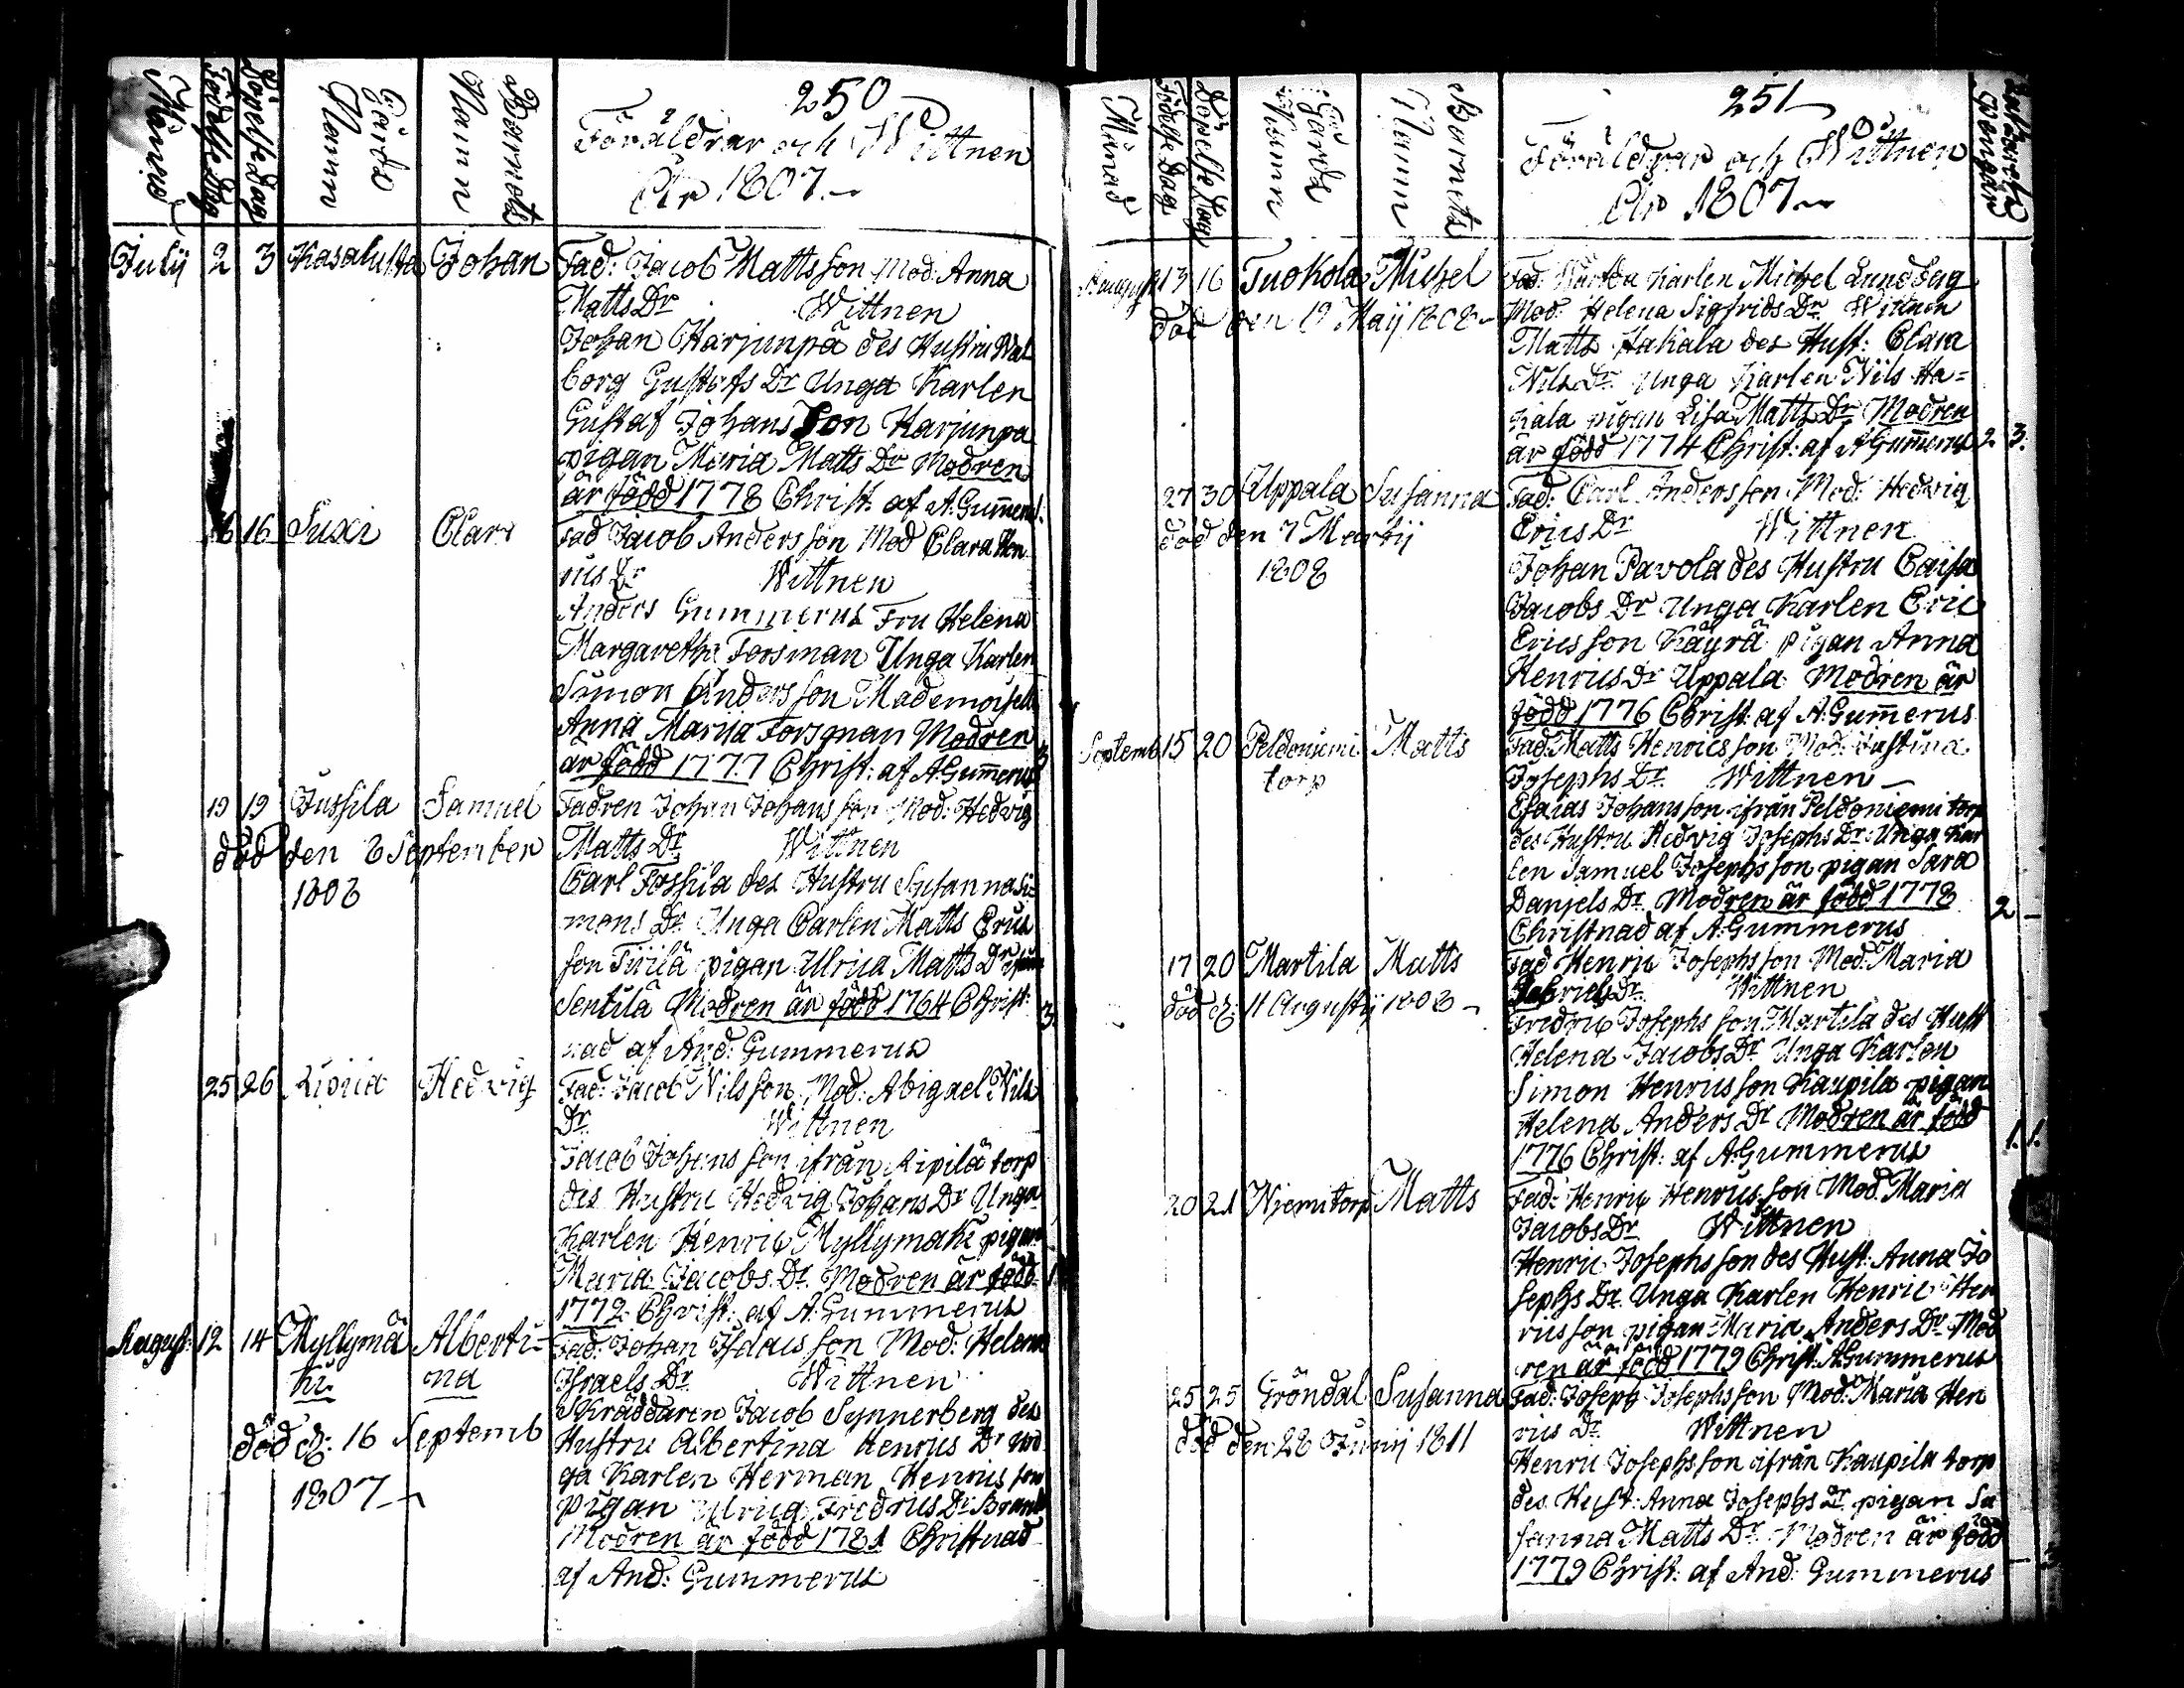 250
Månad
Födelse Dag
Döpelse Dag
Gårds Namn
Barnets Namn
Föräldrar och Wittnen
Åhr 1807.
July 2 3 Kasaluhta Johan Fad: Jacob Mattsson Mod: Anna
Matts Dr Wittnen
Johan Harjunpä des Hustru Wal
borg Gustafs Dr Unga Karlen
Gustaf Johansson Harjunpä
pigan Maria Matts Dr Modren
är född 1778 Christ. af A: Gum̄erus.
16 16 Suxi Clara Fad Jacob Andersson Mod Clara Hen
rics Dr Wittnen
Anders Gummerus Fru Helena
Margaretha Forsman Unga Karlen
Simon Andersson Mademoisell
Anna Mariia Forsman Modren
är född 1777 Christ: af A: Gum̄erus 3
19 19 Jussila Samuel Fadren Johan Johansson Mod: Hedvig
död den 8 September Matts Dr Wittnen
1808 Carl Jossila des Hustru Susanna Si
mons Dr Unga Carlen Matts Erics
son Tiilä pigan Ulrica Matts Dr ifrån
Sentilä Modren är född 1764 Christ: 3.
nad af And: Gummerus
25 26 Hedvig Fad: Jacob Nilsson Mod: Abigael Nils
Dr Wittnen
Jacob Johansson ifrån Ripilä torp
des Hustru Hedvig Johans Dr Unga
Karlen Henric Myllymäki pigan
Maria Jacobs Dr Modren är född 1
1772 Christ: af A: Gummerus
August: 12 14 Myllymä Alberti- Fad: Johan Isdaisson Mod: Helena
ki na Israels Dr Wittnen
Skräddaren Jacob Synnerberg des
död d: 16 Septemb Hustru Albertina Henrics Dr un
ga Karlen Herman Henricsson
1807 pigan Ulrica Fredrics Dr Brand
Modren är född 1781 Christnad
af And: Gummerus
251
Månad
Födelse Dag
Döpelse Dag
Gårds Namn
Barnets Namn
Föräldrar och Wittnen
Åhr 1807
August 13 16 Tuokola Michel Fad: Karlen Michel Lundberg
död den 19 Maij 1808 Mod: Helena Sigfrids Dr Wittnen
Matts Hakala des Hust: Clara
Nils Dr Unga Karlen Nils Ha=
kala pigan Lisa Matts Dr Modren
är född 1774 Christ: af A Gum̄erus 2 3.
27 30 Uppala Susanna Fad: Carl Andersson Mod: Hedvig
död den 7 Martij Erics Dr Wittnen
1808 Johan Pavola des Hustru Caisa
Jacobs Dr Unga Karlen Eric
Ericsson Käyrä pigan Anna
Henrics Dr Uppala Modren är
född 1776 Christ: af A: Gum̄erus
Septemb 15 20 Peldoniemi Matts Fad: Matts Henricsson Mod: Justina
torp Josephs Dr Wittnen
Esaias Johansson ifrån Peldoniemi torp
des Hustru Hedvig Josephs Dr Unga Kar
len Samuel Josephsson pigan Sara
Daniels Dr Modren är född 1778 2 -
Christnad af A: Gummerus
17 20 Martila Matts Fad Henric Josephsson Mod: Maria
död d: 11 Augustij 1808 Gabriels Dr Wittnen
Fredric Josephsson Martila des Hust
Helena Jacobs Dr Unga Karlen
Simon Henricsson Kaupila pigan
Helena Anders Dr Modren är född 1. 1.
1776 Christ: af A: Gummerus
20 21 Niemitorp Matts Fad: Henric Henricsson Mod. Maria
Jacobs Dr Wittnen
Henric Josephsson des Hust: Anna Jo
sephs Dr Unga Karlen Henric Hen
ricsson pigan Maria Anders Dr Mod
ren är född 1779 Christ: A Gummerus
25 25 Gröndal Susanna Fad: Joseph Josephsson Mod: Maria Hen
död den 28 Junij 1811 rics Dr Wittnen
Henric Josephsson ifrån Kaupila torp
des Hust: Anna Josephs Dr pigan Su
sanna Matts Dr Modren är född
1779 Christ: af And: Gummerus